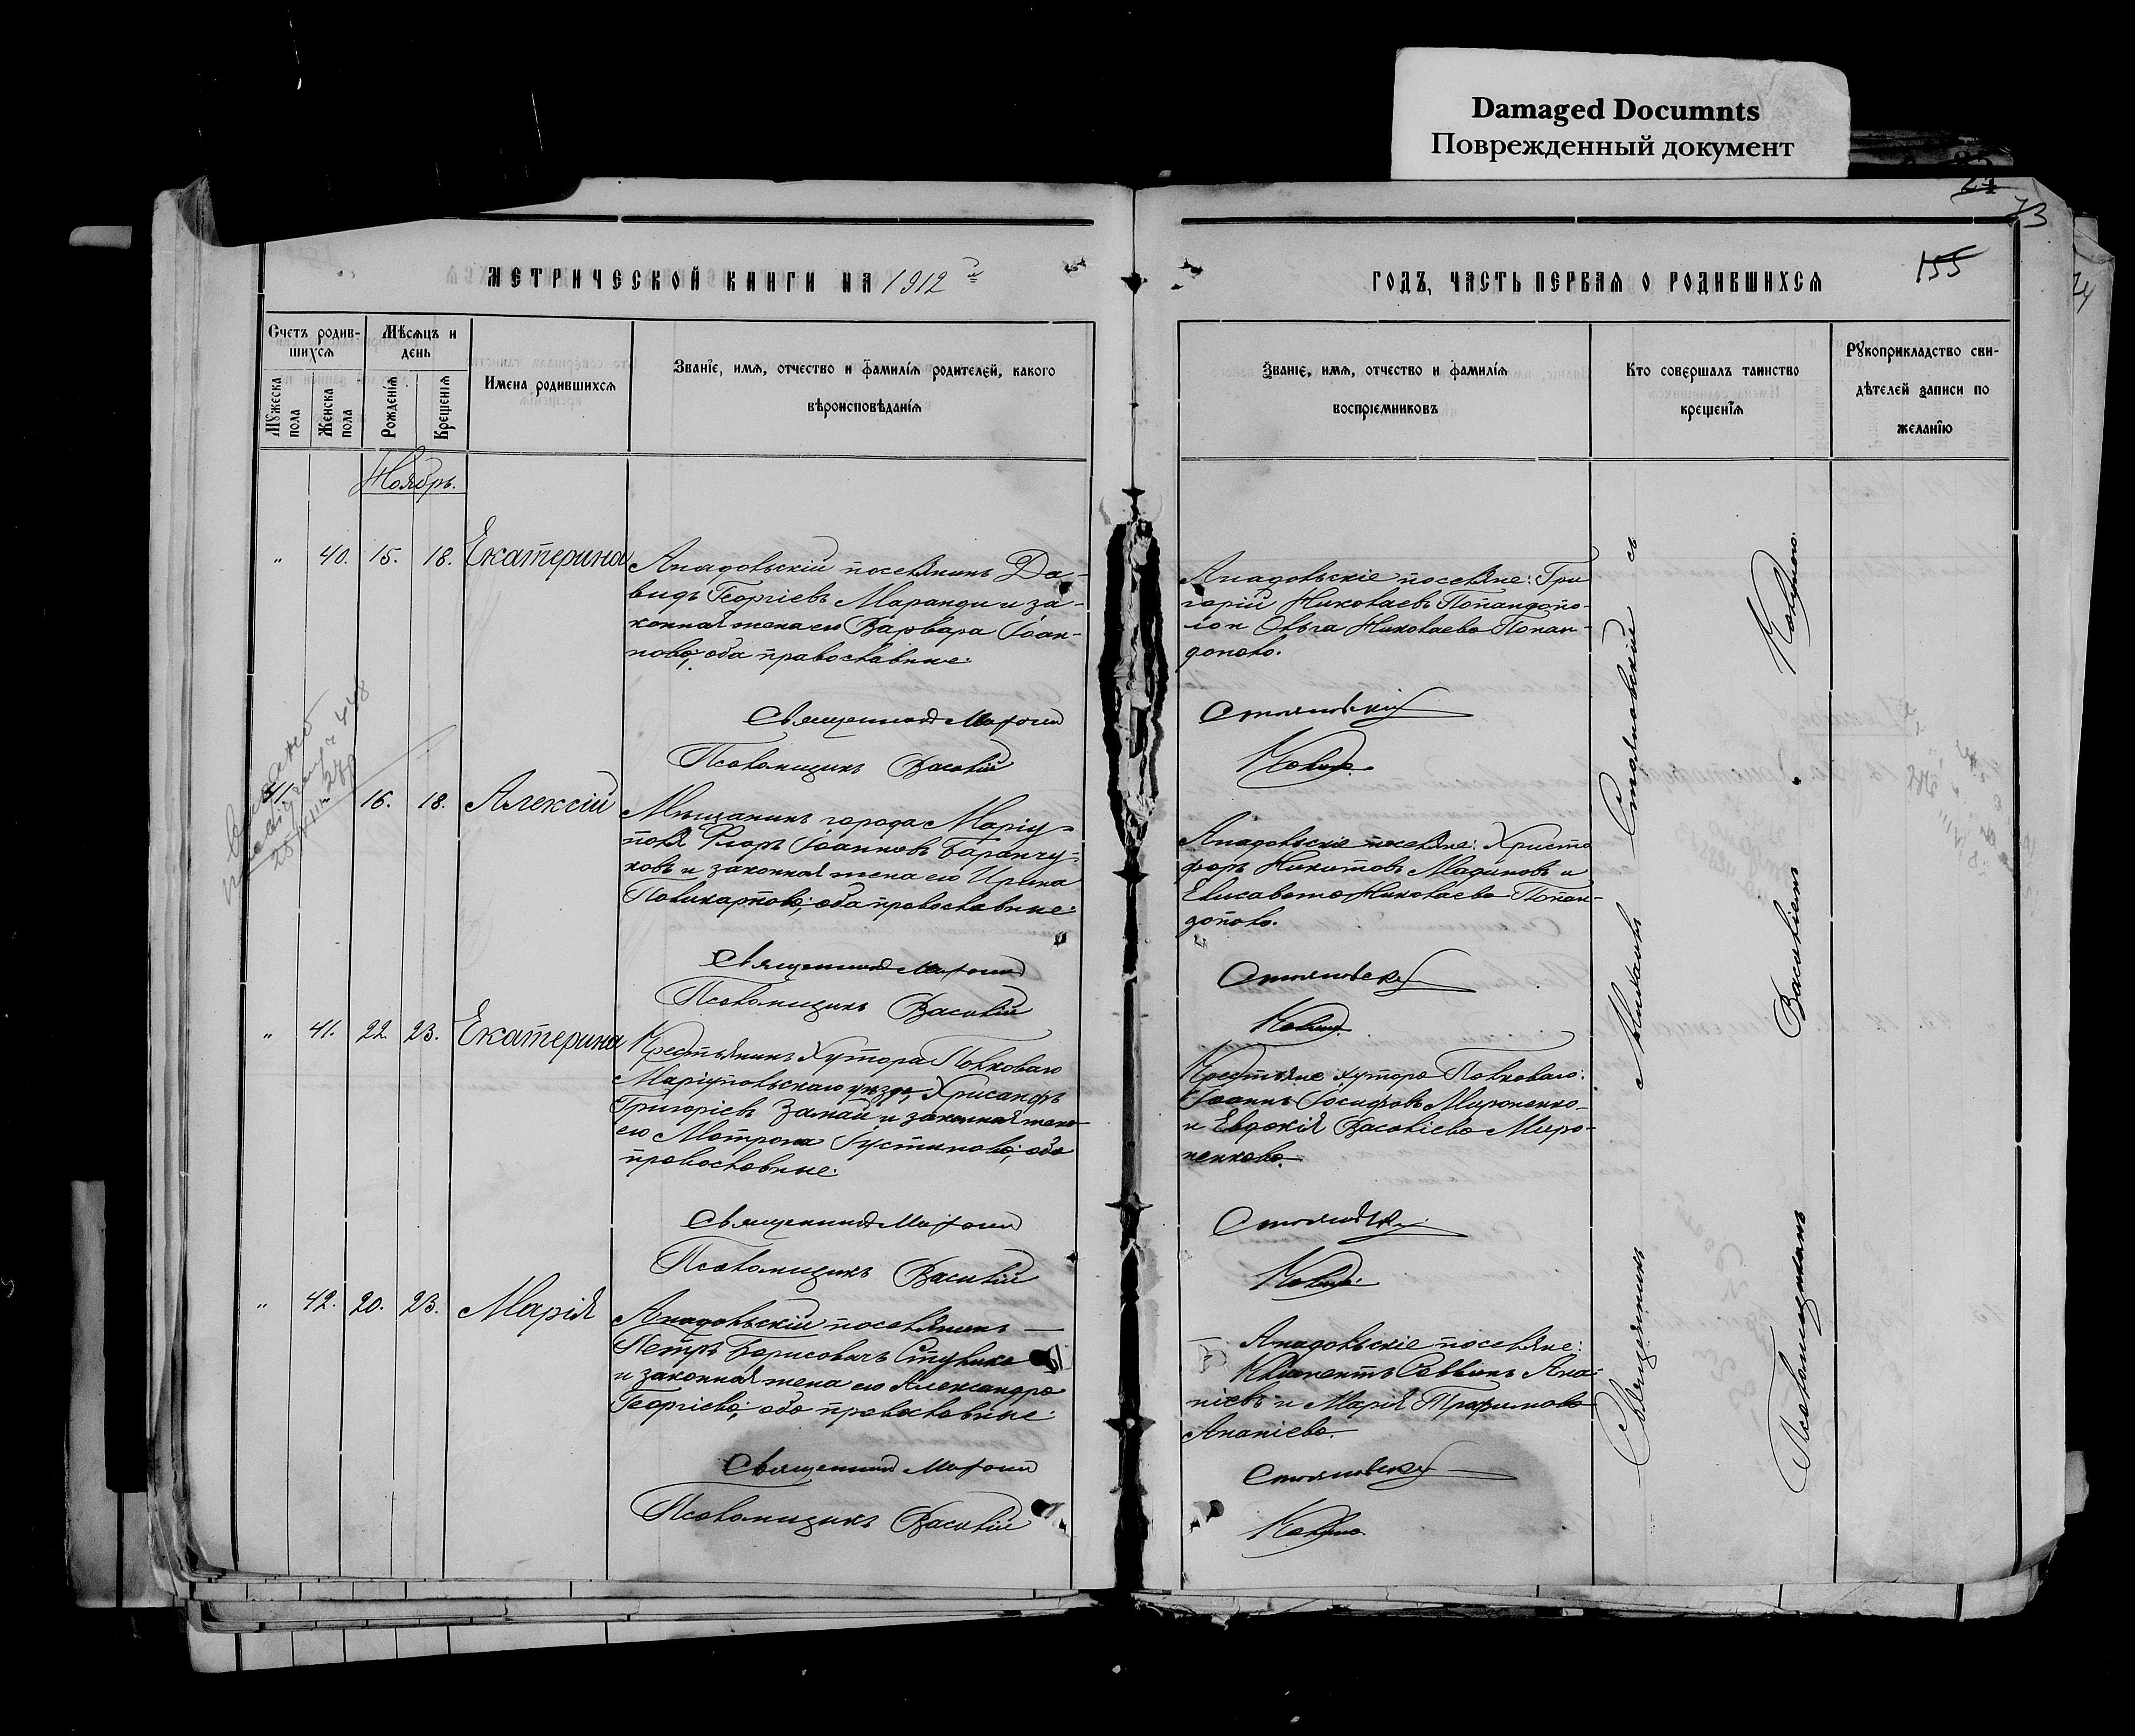 Damaged Documnts
Поврежденный документ
73
155
МЕТРИЧЕСКОЙ КНИГИ НА 1912 й
ГОДЪ, ЧАСТЬ ПЕРВАЯ О РОДИВШИХСЯ
Счетъ родив-
шихся
Мѣсяцъ и
день
Мужеска
пола
Женска
пола
Рожденія
Крещенія
Имена родившихся
Званіе, имя, отчество и фамилія родителей, какого
вѣроисповѣданія
Званіе, имя, отчество и фамилія
воспріемниковъ
Кто совершалъ таинство
крещенія
Рукоприкладство сви-
дѣтелей записи по
желанію
Ноябрь.
" 40. 15. 18. Екатерина
Анадольскій поселянинъ Да-
видъ Георгіевъ Маранди и за-
конная жена его Варвара Іоан-
нова, оба православные.
Священникъ
Псаломщикъ Василій
Анадольскіе поселяне: Гри
горій Николаевъ Попандопо-
ло и Ольга Николаева Попан-
дополо.
Стояновскій
41. 16. 18. Алексій
Мѣщанинъ города Маріу-
поля Флоръ Іоанновъ Баранчу-
ковъ и законная жена его Ирина
Поликарпова; оба православные.
Священникъ
Псаломщикъ Василій
Анадольскіе поселяне: Христо
форъ Никитовъ Мадиновъ и
Елисавета Николаева Попан-
дополо.
Стояновскій
" 41. 22. 23. Екатерина
Крестьянинъ хутора Полковаго
Маріупольскаго уѣзда, Хрисанфъ
Григоріевъ Замай и законная жена
его Матрона Іустинова; оба
православные.
Священникъ
Псаломщикъ Василій
Крестьяне хутора Полковаго:
Іоаннъ Іосифовъ Мироненко
и Евдокія Васильева Миро-
ненкова.
Стояновскій
" 42. 20. 23. Марія
Анадольскій поселянинъ
Петръ Борисовичъ Ступика
и законная жена его Александра
Георгіева; оба православные.
Священникъ
Псаломщикъ Василій
Анадольскіе поселяне:
Климентъ Саввинъ Ана-
ніевъ и Марія Трофимова
Ананіева.
Стояновскій
Священникъ Михаилъ Стояновскій съ
Псаломщикомъ Василіемъ